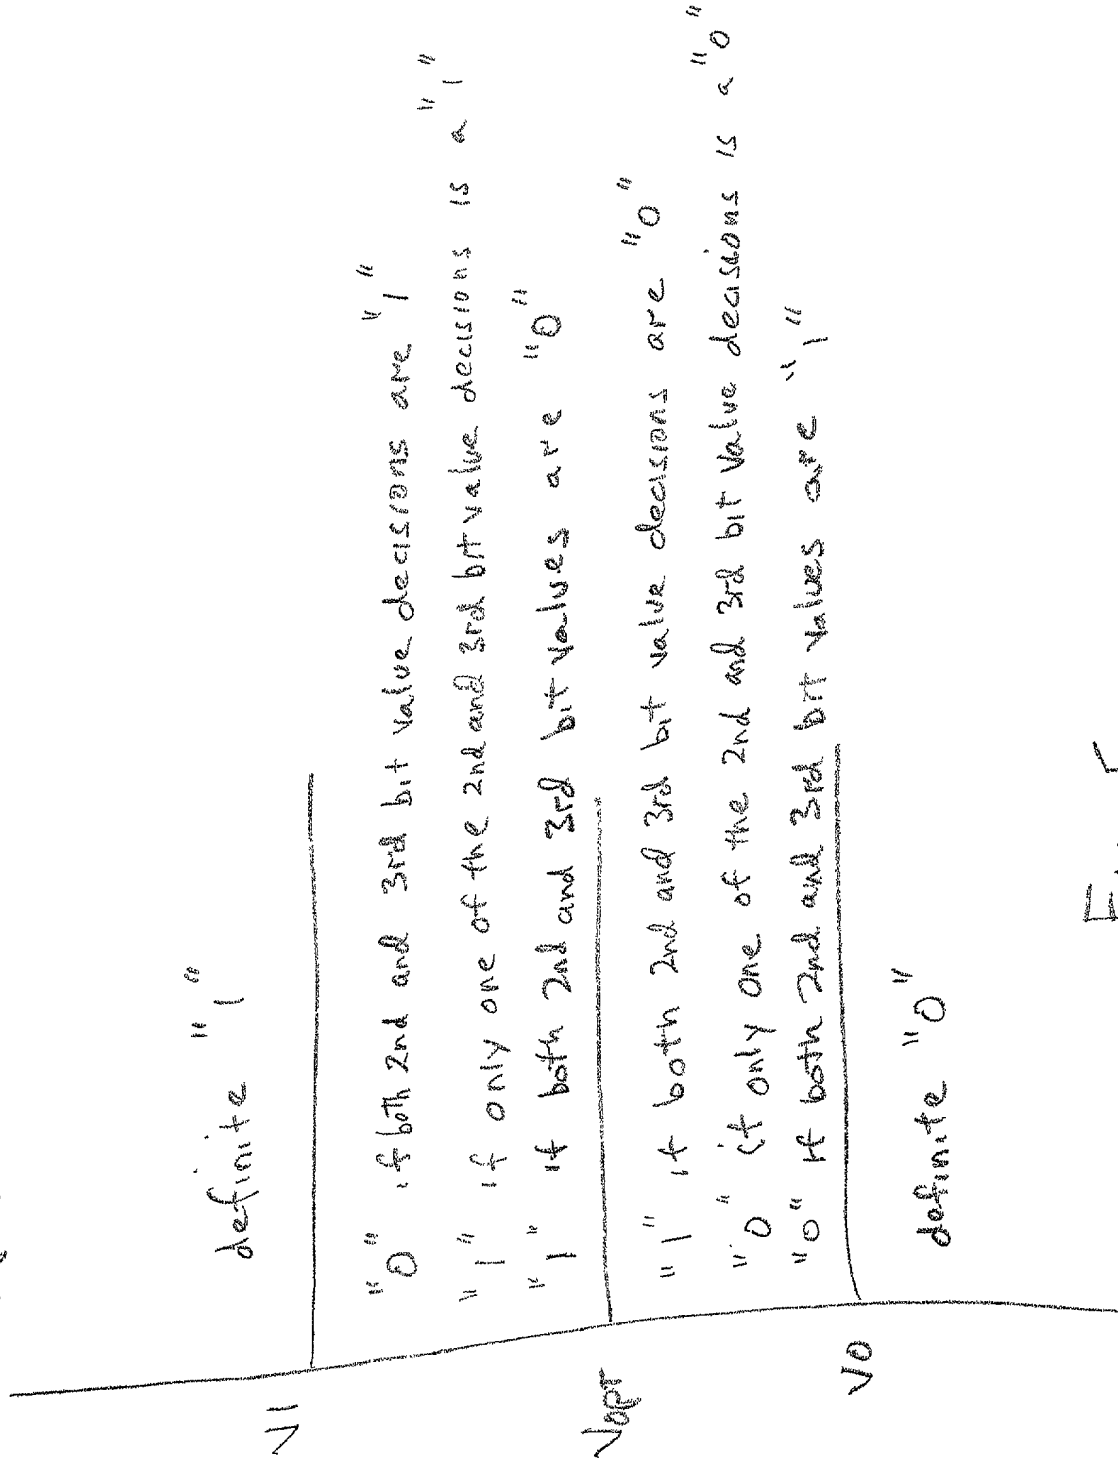 definite "1"
V1
"0" if both 2nd and 3rd bit value decisions are "1"
"1" if only one of the 2nd and 3rd bit value decisions is a "1"
"1" if both 2nd and 3rd bit values are "0"
Vopt
"1" if both 2nd and 3rd bit value decisions are "0"
"0" if only one of the 2nd and 3rd bit value decisions is a "0"
"0" if both 2nd and 3rd bit values are "1"
V0
definite "0"